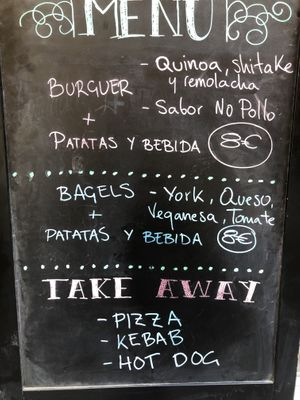 MENÚ
- Quinoa, shitake
y remolacha
BURGUER
- Sabor No Pollo
+
PATATAS Y BEBIDA 8€
BAGELS - York, Queso,
+ Veganesa, Tomate
PATATAS Y BEBIDA 8€
TAKE AWAY
- PIZZA
- KEBAB
- HOT DOG